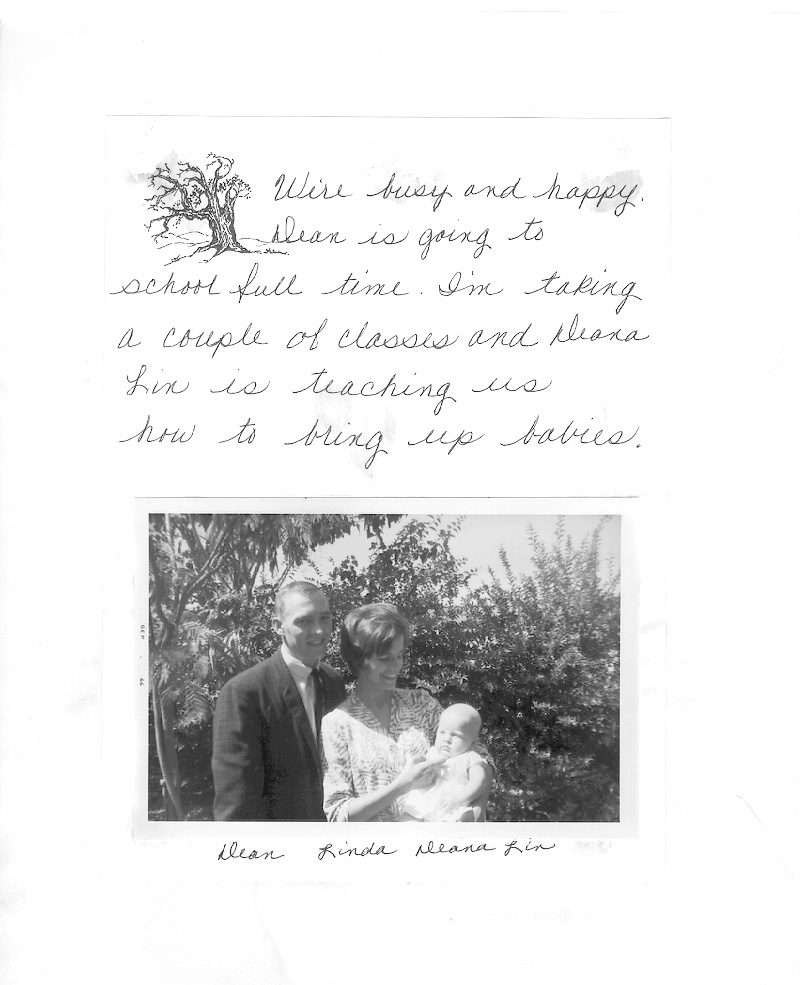 We're busy and happy.
Dean is going to
school full time. I'm taking
a couple of classes and Deana
Lin is teaching us
how to bring up babies.
Dean Linda Deana Lin